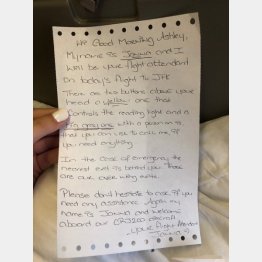 Good Morning Ashley,
My name is Joanna and I
will be your flight attendant
on today's flight to JFK
There are two buttons above your
head a yellow one that
controls the reading light and a
big gray one with a person on it
that you can use to call me, if
you need anything.
In the case of emergency the
nearest exit is behind you. Those
are our over wing exits.
Please don't hesitate to ask if you
need any assistance. Again my
name is Joanna and welcome
aboard our aircraft
your Flight Attendant
Joanna